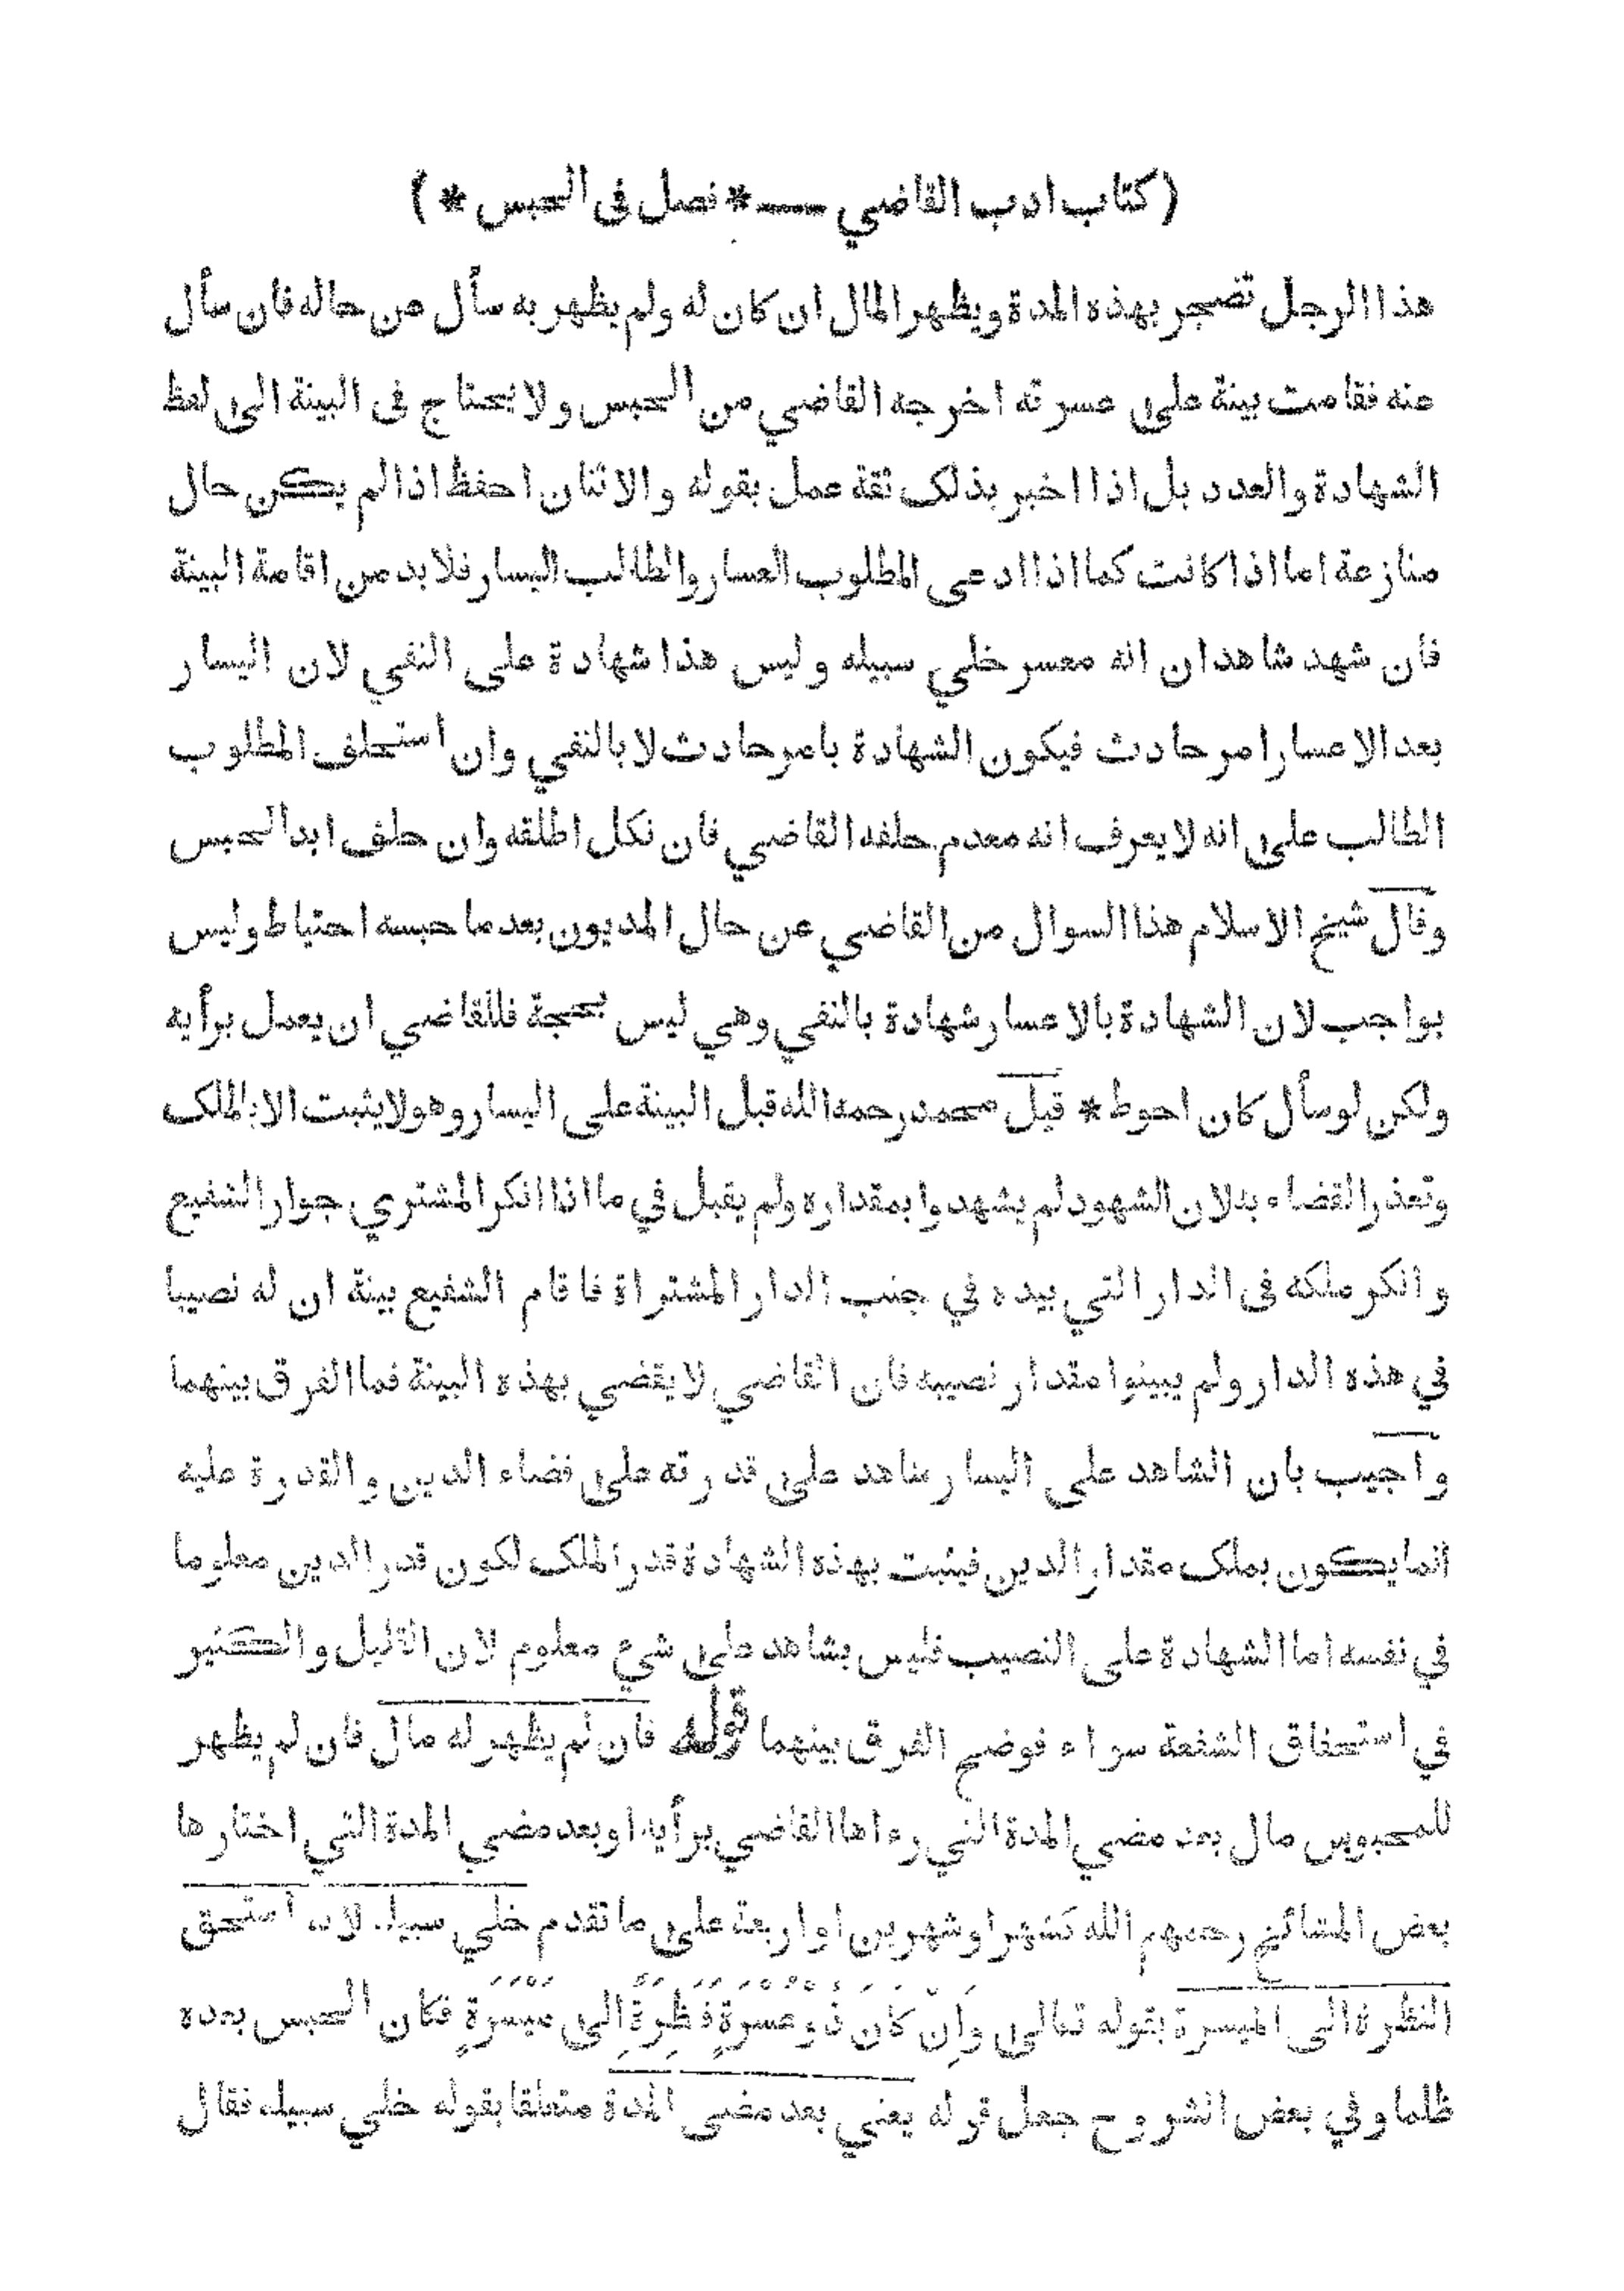 (كتاب ادب القاضي — * فصل في الحبس *)
هذا الرجل تضجر بهذه المدة ويظهر المال ان كان له ولم يظهر به سأل من حاله فان سأل
عنه فقامت بينة على عسرته اخرجه القاضي من الحبس ولا يحتاج في البينة الى لفظ
الشهادة والعدد بل اذا اخبر بذلك ثقة عمل بقوله والاثنان احفظ اذا لم يكن حال
منازعة اما اذا كانت كما اذا ادعى المطلوب العسار والطالب اليسار فلا بد من اقامة البينة
فان شهد شاهدان انه معسر خلي سبيله وليس هذا شهادة على النفي لان اليسار
بعد الاعسار امر حادث فيكون الشهادة بامر حادث لا بالنفي وان استحلف المطلوب
الطالب على انه لا يعرف انه معدم حلفه القاضي فان نكل اطلقه وان حلف ابد الحبس
وقال شيخ الاسلام هذا السوال من القاضي عن حال المديون بعد ما حبسه احتياط وليس
بواجب لان الشهادة بالاعسار شهادة بالنفي وهي ليس بحجة فللقاضي ان يعمل برأيه
ولكن لو سأل كان احوط * قيل محمد رحمه الله قبل البينة على اليسار وهو لا يثبت الا بالملك
وتعذر القضاء به لان الشهود لم يشهدوا بمقداره ولم يقبل في ما اذا انكر المشتري جوار الشفيع
وانكر ملكه في الدار التي بيده في جنب الدار المشتراة فاقام الشفيع بينة ان له نصيبا
في هذه الدار ولم يبينوا مقدار نصيبه فان القاضي لا يقضي بهذه البينة فما الفرق بينهما
واجيب بان الشاهد على اليسار شاهد على قدرته على قضاء الدين والقدرة عليه
انما يكون بملك مقدار الدين فيثبت بهذه الشهادة قدر الملك لكون قدر الدين معلوما
في نفسه اما الشهادة على النصيب فليس بشاهد على شيء معلوم لان القليل والكثير
في استحقاق الشفعة سواء فوضح الفرق بينهما قوله فان لم يظهر له مال فان لم يظهر
للمحبوس مال بعد مضي المدة التي رءاها القاضي برأيه او بعد مضي المدة التي اختارها
بعض المشائخ رحمهم الله شهرا وشهرين او اربعة على ما تقدم خلي سبيله لانه استحق
النظرة الى الميسرة بقوله تعالى وَاِنْ كَانَ ذُو عُسْرَةٍ فَنَظِرَةٌ اِلى مَيْسَرَةٍ فكان الحبس بعده
ظلما وفي بعض الشروح جعل قوله يعني بعد مضي المدة متعلقا بقوله خلي سبيله فقال